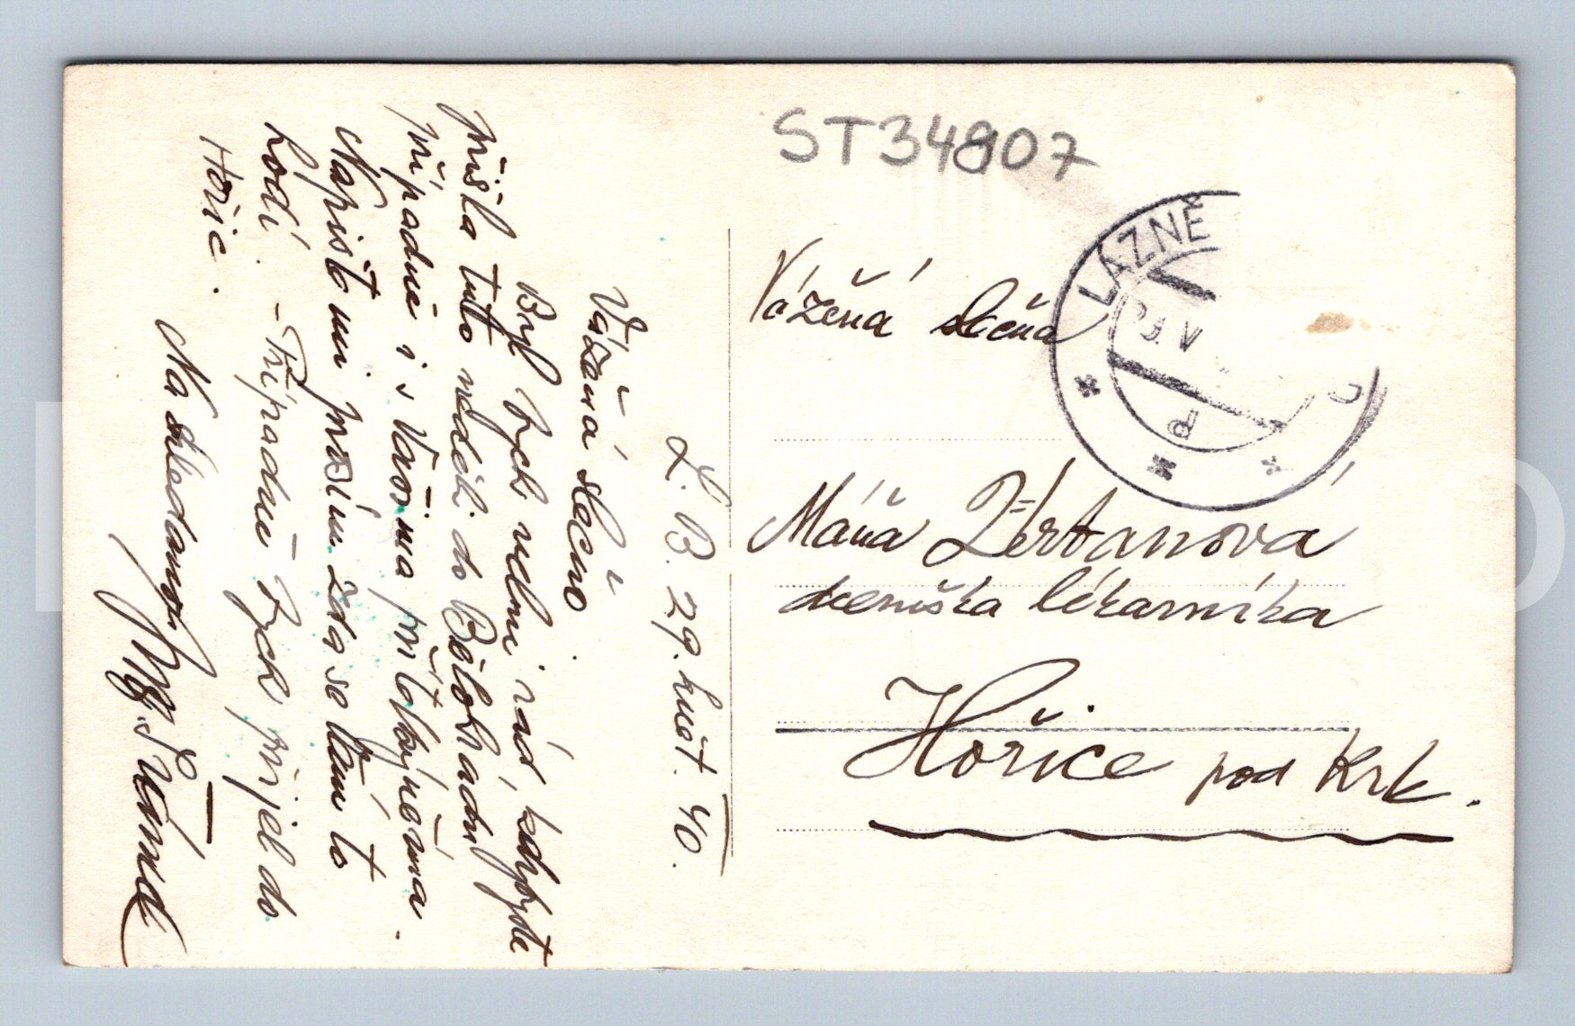 ST34807
LÁZNĚ
L. B. 29. květ. 40.
Vážená slečno
Byl bych velmi rád, kdybyste
přišla tuto neděli do Bělohradu
případně i s Vašima přítelkyněma.
Napište mi prosím zda se Vám to
hodí. - Případně bych přijel do
Hořic.
Na shledanou
Vážená slečna
Máňa Žertanová
lékárníka
Hořice pod Krk.